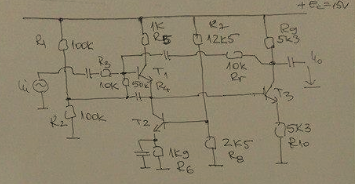 +Ec=+15V
R1
100k
1K
R5
R7
12K5
R9
5K3
ui
R3
10K
T1
50K
R4
10K
Rr
Uo
T3
R2
100k
T2
1K9
R6
2K5
R8
5K3
R10